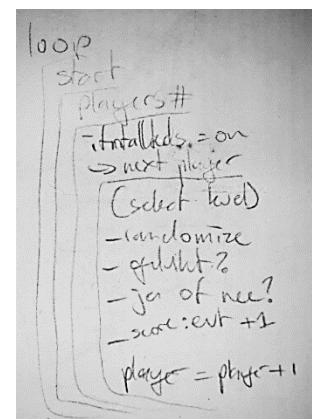 loop
start
players #
= on
→ next player
(select level)
- randomize
- gelukt?
- ja of nee?
- score: evt +1
player = player + 1